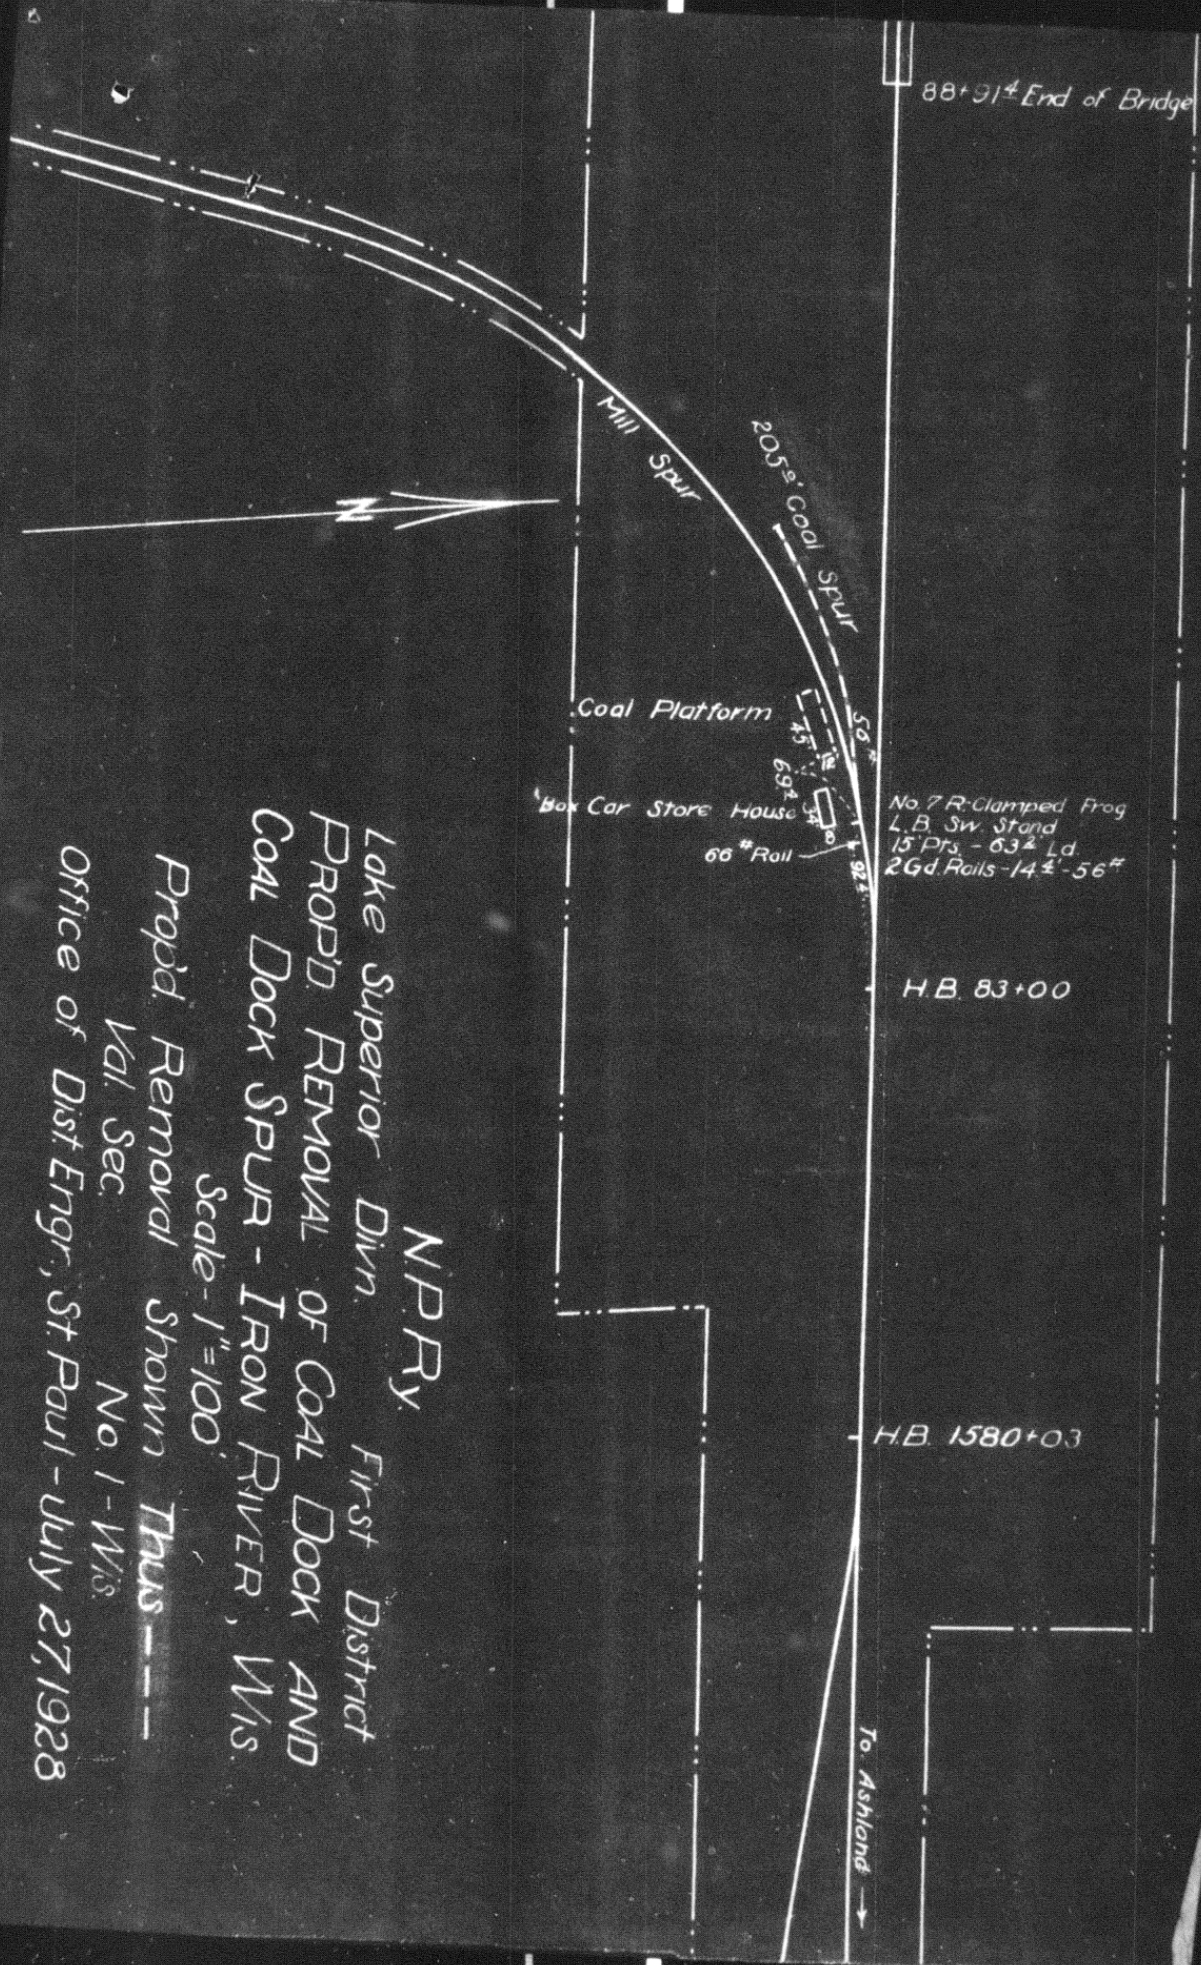 88+91⁴ End of Bridge
Mill Spur
205⁰' Coal Spur
N
Coal Platform
45
12
56#
69⁴
Box Car Store House
34
8
66# Rail
92⁴
No. 7 R-Clamped Frog
L.B. Sw. Stand
15' Pts. - 63² Ld.
2 Gd. Rails - 14⁴' - 56#
H.B. 83+00
H.B. 1580+03
To Ashland →
N.P.Ry.
Lake Superior Divn. First District
PROP'D. REMOVAL OF COAL DOCK AND
COAL DOCK SPUR - IRON RIVER, WIS.
Scale - 1"=100'
Prop'd. Removal Shown Thus ----
Val. Sec. No. 1 - Wis.
Office of Dist. Engr., St. Paul - July 27, 1928